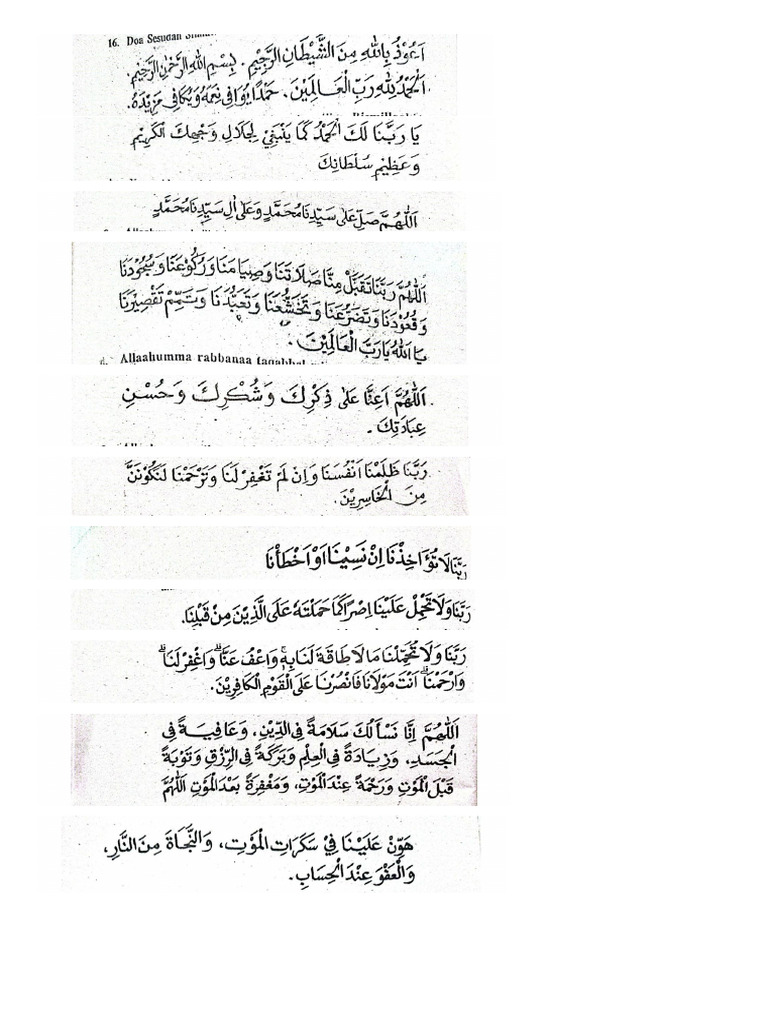 16. Doa Sesudah
اَعُوْذُ بِاللهِ مِنَ الشَّيْطَانِ الرَّجِيْمِ. بِسْمِ اللهِ الرَّحْمٰنِ الرَّحِيْمِ.
اَلْحَمْدُ لِلّٰهِ رَبِّ الْعَالَمِيْنَ. حَمْدًا يُوَافِى نِعَمَهُ وَيُكَافِى مَزِيْدَهُ.
يَا رَبَّنَا لَكَ الْحَمْدُ كَمَا يَنْبَغِيْ لِجَلَالِ وَجْهِكَ الْكَرِيْمِ
وَعَظِيْمِ سُلْطَانِكَ
اَللّٰهُمَّ صَلِّ عَلٰى سَيِّدِنَا مُحَمَّدٍ وَعَلٰى اٰلِ سَيِّدِنَا مُحَمَّدٍ
اَللّٰهُمَّ رَبَّنَا تَقَبَّلْ مِنَّا صَلَاتَنَا وَصِيَامَنَا وَرُكُوْعَنَا وَسُجُوْدَنَا
وَقُعُوْدَنَا وَتَضَرُّعَنَا وَتَخَشُّعَنَا وَتَعَبُّدَنَا وَتَمِّمْ تَقْصِيْرَنَا
يَا اَللهُ يَا رَبَّ الْعَالَمِيْنَ.
d. Allaahumma rabbanaa taqabbal
اَللّٰهُمَّ اَعِنَّا عَلٰى ذِكْرِكَ وَشُكْرِكَ وَحُسْنِ
عِبَادَتِكَ.
رَبَّنَا ظَلَمْنَا اَنْفُسَنَا وَاِنْ لَمْ تَغْفِرْ لَنَا وَتَرْحَمْنَا لَنَكُوْنَنَّ
مِنَ الْخَاسِرِيْنَ.
رَبَّنَا لَا تُؤَاخِذْنَا اِنْ نَسِيْنَا اَوْ اَخْطَأْنَا
رَبَّنَا وَلَا تَحْمِلْ عَلَيْنَا اِصْرًا كَمَا حَمَلْتَهُ عَلَى الَّذِيْنَ مِنْ قَبْلِنَا.
رَبَّنَا وَلَا تُحَمِّلْنَا مَا لَا طَاقَةَ لَنَا بِهٖۚ وَاعْفُ عَنَّاۗ وَاغْفِرْ لَنَاۗ
وَارْحَمْنَاۗ اَنْتَ مَوْلَانَا فَانْصُرْنَا عَلَى الْقَوْمِ الْكَافِرِيْنَ.
اَللّٰهُمَّ اِنَّا نَسْأَلُكَ سَلَامَةً فِى الدِّيْنِ، وَعَافِيَةً فِى
الْجَسَدِ، وَزِيَادَةً فِى الْعِلْمِ وَبَرَكَةً فِى الرِّزْقِ وَتَوْبَةً
قَبْلَ الْمَوْتِ وَرَحْمَةً عِنْدَ الْمَوْتِ، وَمَغْفِرَةً بَعْدَ الْمَوْتِ اَللّٰهُمَّ
هَوِّنْ عَلَيْنَا فِيْ سَكَرَاتِ الْمَوْتِ، وَالنَّجَاةَ مِنَ النَّارِ،
وَالْعَفْوَ عِنْدَ الْحِسَابِ.